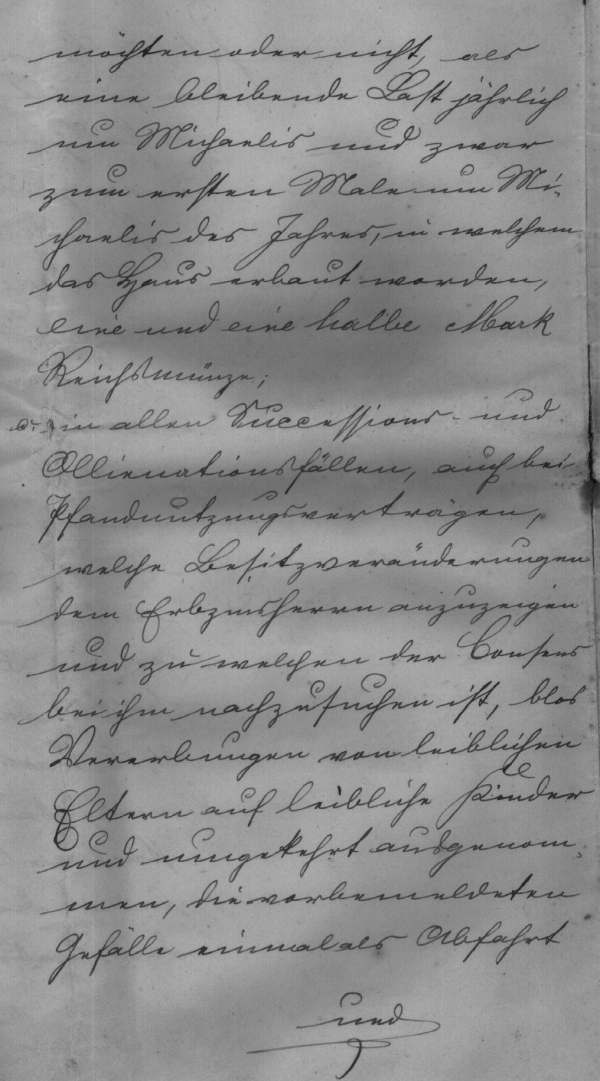 möchten oder nicht, als
eine bleibende Last jährlich
um Michaelis und zwar
zum ersten Male um Mi-
chaelis des Jahres, in welchem
das Haus erbaut worden,
eine und eine halbe Mark
Reichsmünze;
in allen Successions- und
Allienationsfällen, auch bei
Pfandnutzungsverträgen,
welche Besitzveränderungen
dem Erbzinsherrn anzuzeigen
und zu welchen der Consens
bei ihm nachzusuchen ist, blos
Vererbungen von leiblichen
Eltern auf leibliche Kinder
und umgekehrt ausgenom-
men, die vorbemeldeten
Gefälle einmal als Abfahrt
und